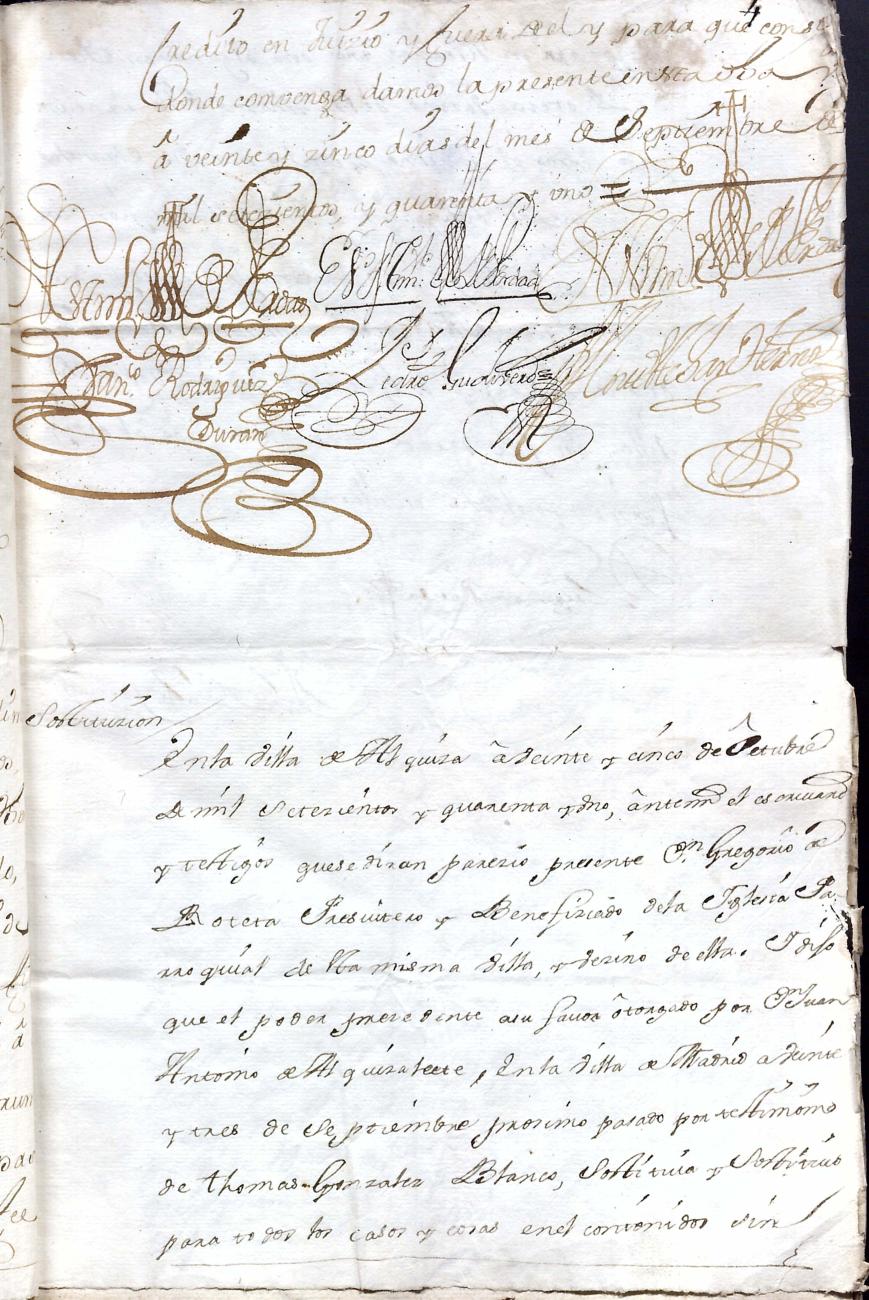 Credito en Juizio y fuera de el y para que cons
donde comvenga damos la presente en sta villa
â veinte y zinco dias del mes de Septiembre de
mil setezientos, y quarenta y uno =
En testimo de Verdad
En testimo de Verdad
Franco. Rodriguez
Duran
Pedro Guerrero
Sostituzion
En la Villa de Alquiza â veinte y cinco de Octubre
de mil setezientos y quarenta y uno, ante mi el escrivano
y testigos que se diran parezio presente Dn. Gregorio de
Roteta Presvitero y Benefiziado de la Iglesia Pa
rroquial de sta misma Villa, y vezino de ella. I dijo
que el poder prezedente a su favor ôtorgado por Dn Juan
Antonio de Alquizalete, En la Villa de Madrid a veinte
y tres de Septiembre proximo pasado por testimonio
de Thomas Gonzalez Blanco, Sostituia y Sostituio
para todos los casos y cosas en el contenidos sin